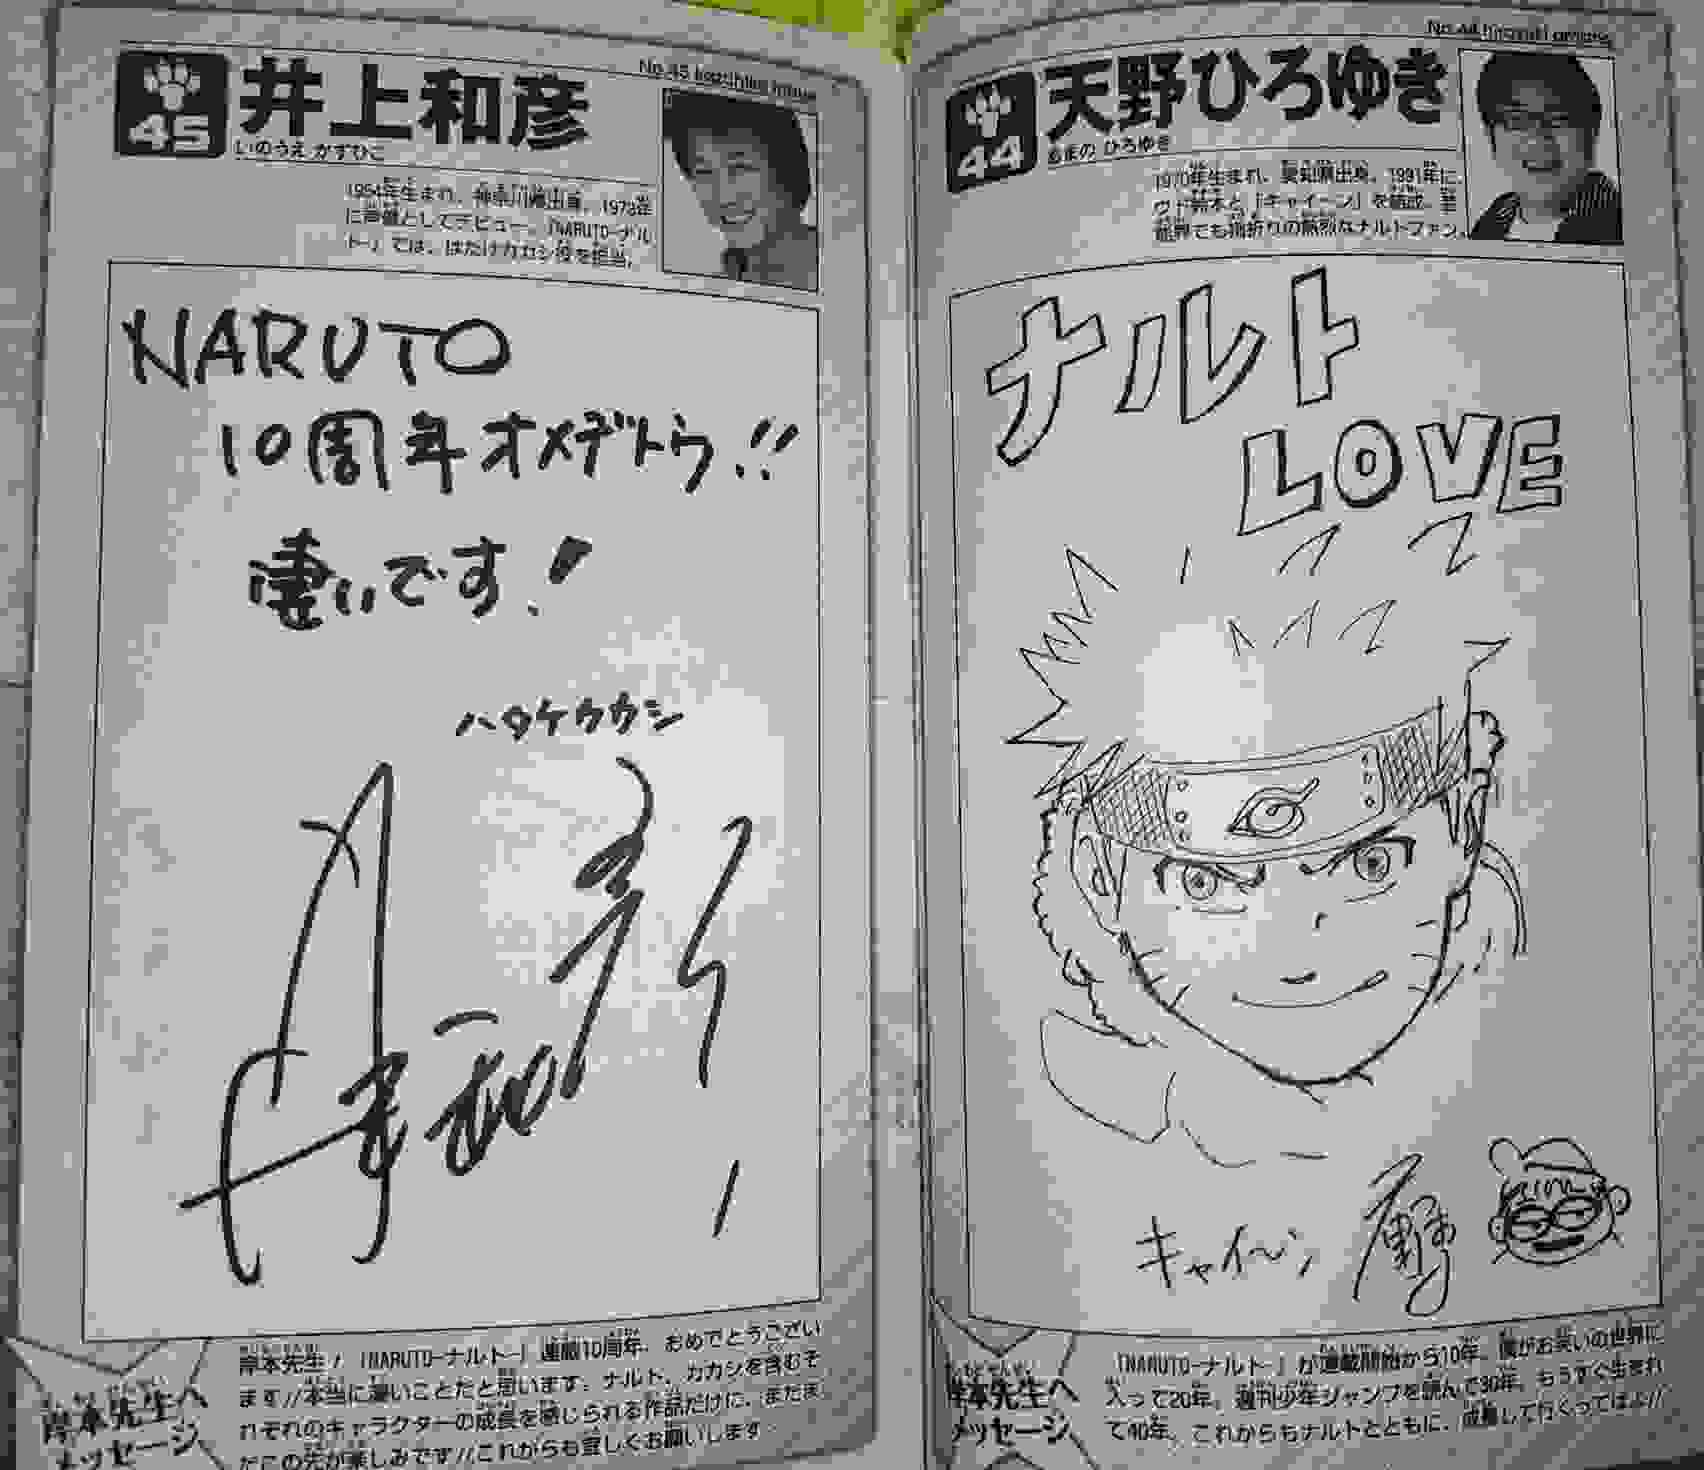 No.44 hiroyuki amano
44
天野ひろゆき
あまの ひろゆき
1970年生まれ、愛知県出身。1991年に、
ウド鈴木と『キャイ〜ン』を結成。芸
能界でも指折りの熱烈なナルトファン。
ナルト
LOVE
キャイ〜ン
天野
岸本先生へ
メッセージ
『NARUTO-ナルト-』が連載開始から10年。僕がお笑いの世界に
入って20年。週刊少年ジャンプを読んで30年。もうすぐ生まれ
て40年。これからもナルトとともに、成長して行くってばよ//
No.45 kazuhiko inoue
45
井上和彦
いのうえ かずひこ
1954年生まれ、神奈川県出身。1973年
に声優としてデビュー。『NARUTO-ナル
ト-』では、はたけカカシ役を担当。
NARUTO
10周年オメデトウ!!
凄いです!
ハタケカカシ
井上和彦
岸本先生へ
メッセージ
岸本先生/『NARUTO-ナルト-』連載10周年、おめでとうござい
ます//本当に凄いことだと思います。ナルト、カカシを含むそ
れぞれのキャラクターの成長を感じられる作品だけに、まだま
だこの先が楽しみです//これからも宜しくお願いします。